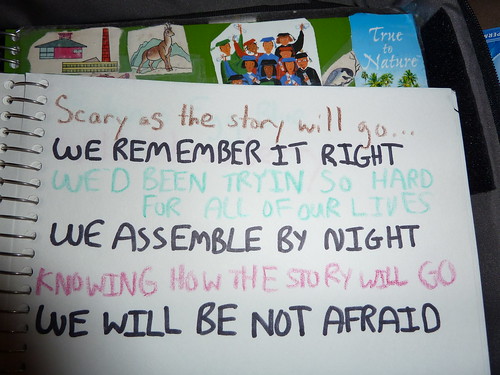 True
to
Nature
Scary as the story will go...
WE REMEMBER IT RIGHT
WE'D BEEN TRYIN SO HARD
FOR ALL OF OUR LIVES
WE ASSEMBLE BY NIGHT
KNOWING HOW THE STORY WILL GO
WE WILL BE NOT AFRAID